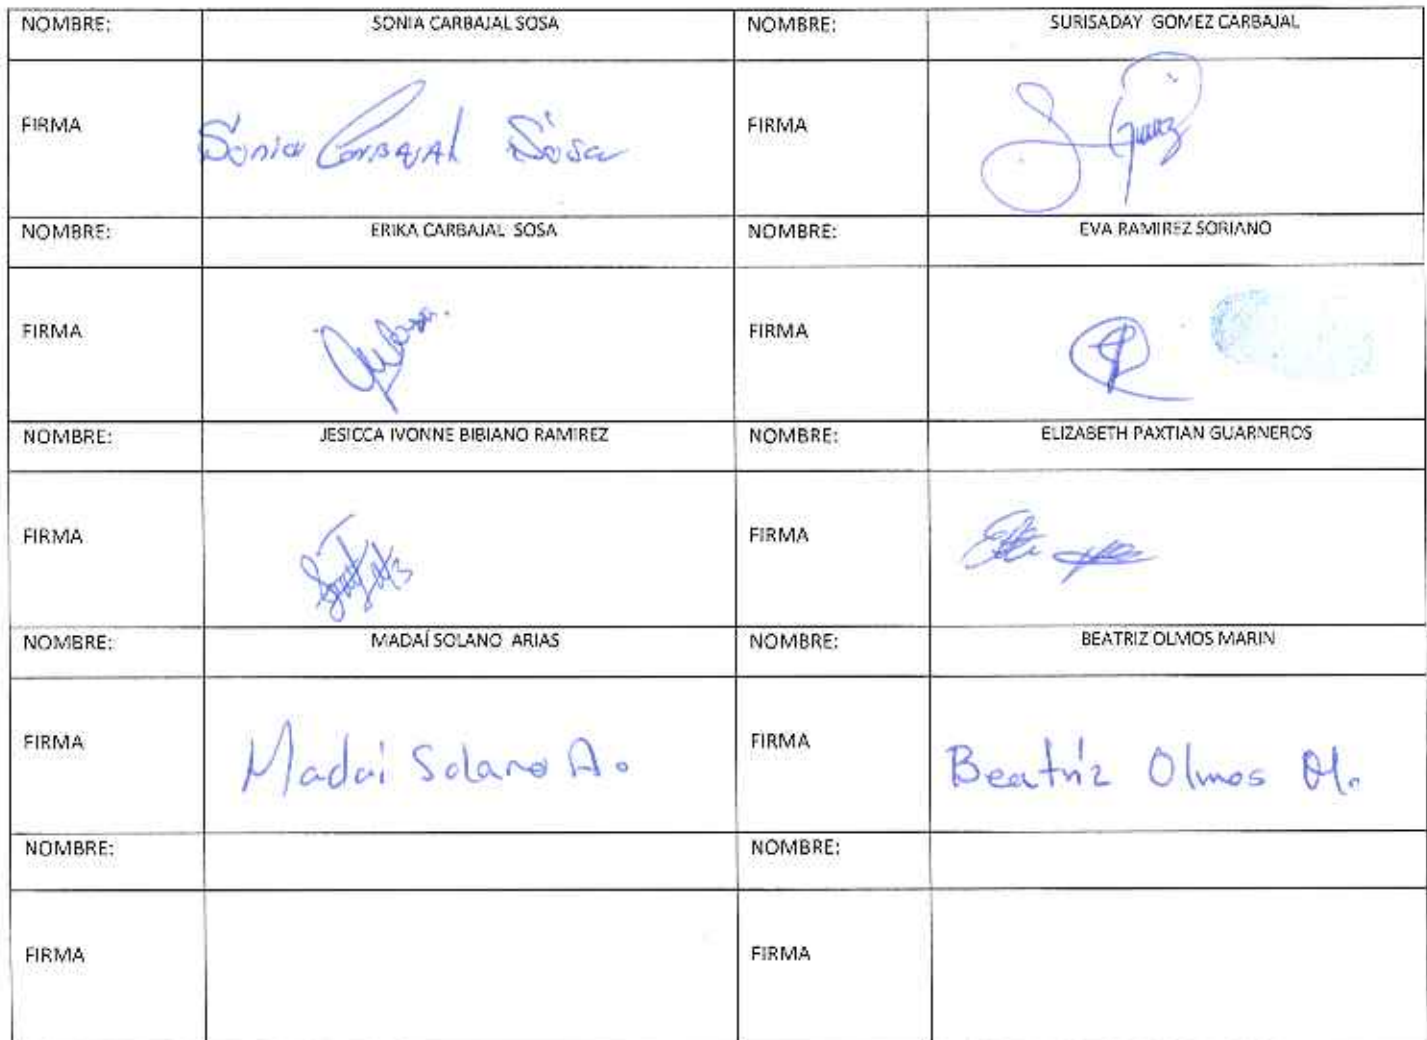 NOMBRE: SONIA CARBAJAL SOSA NOMBRE: SURISADAY GOMEZ CARBAJAL
FIRMA Sonia CARBAJAL Sosa FIRMA
NOMBRE: ERIKA CARBAJAL SOSA NOMBRE: EVA RAMIREZ SORIANO
FIRMA FIRMA
NOMBRE: JESICCA IVONNE BIBIANO RAMIREZ NOMBRE: ELIZABETH PAXTIAN GUARNEROS
FIRMA FIRMA
NOMBRE: MADAÍ SOLANO ARIAS NOMBRE: BEATRIZ OLMOS MARIN
FIRMA Madai Solano A. FIRMA Beatriz Olmos M.
NOMBRE: NOMBRE:
FIRMA FIRMA